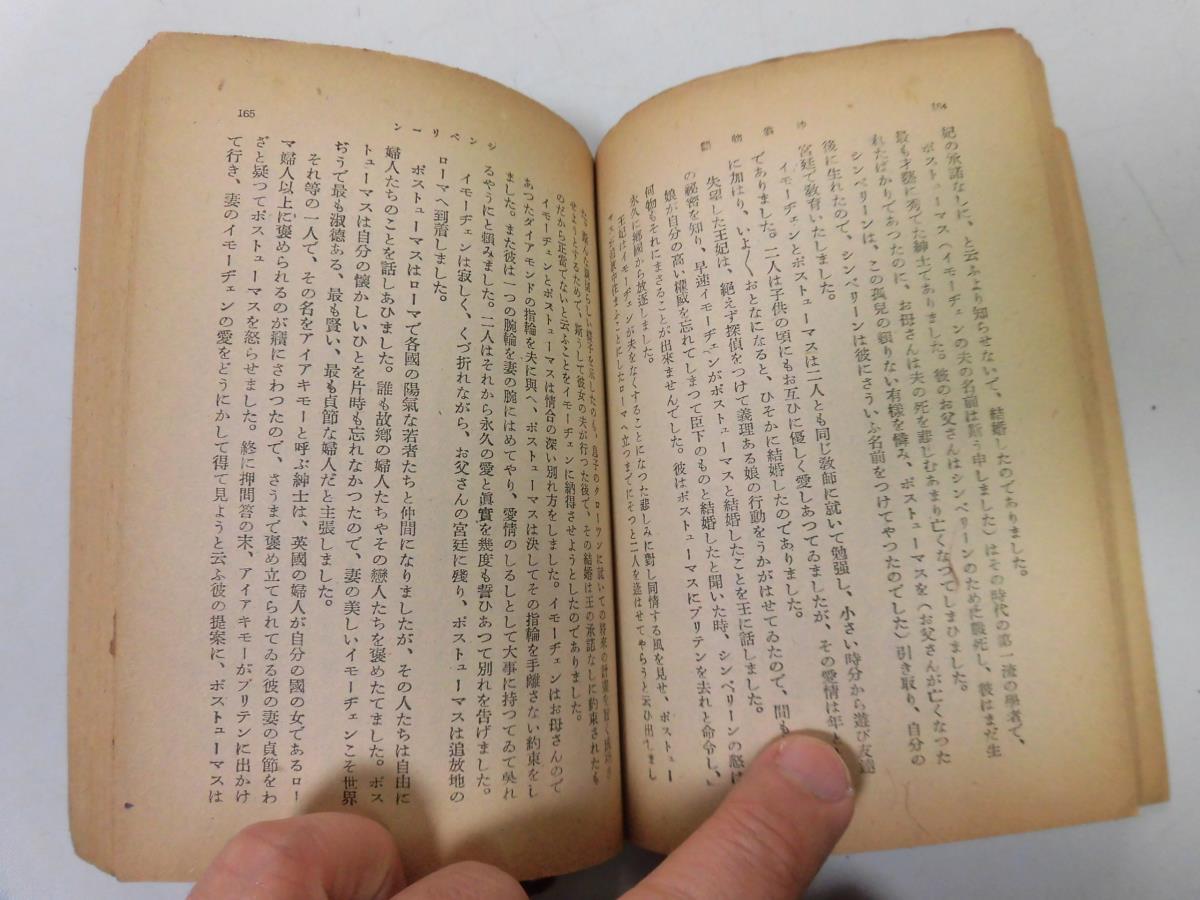 164
沙翁物語
妃の承諾なしに、と云ふより知らせないで、結婚したのでありました。
ポストューマス(イモーヂェンの夫の名前は斯う申しました)はその時代の第一流の學者で、
最も才藝に秀でた紳士でありました。彼のお父さんはシンベリーンのために戰死し、彼はまだ生
れたばかりであつたのに、お母さんは夫の死を悲しむあまり亡くなつてしまひました。
シンベリーンは、この孤兒の賴りない有樣を憐み、ポストューマスを(お父さんが亡くなつた
後に生れたので、シンベリーンは彼にさういふ名前をつけてやつたのでした)引き取り、自分の
宮廷で敎育いたしました。
イモーヂェンとポストューマスは二人とも同じ敎師に就いて勉强し、小さい時分から遊び友達
でありました。二人は子供の頃にもお互ひに優しく愛しあつてゐましたが、その愛情は年と
に加はり、いよ〱おとなになると、ひそかに結婚したのでありました。
失望した王妃は、絕えず探偵をつけて義理ある娘の行動をうかがはせてゐたので、間も
の祕密を知り、早速イモーヂェンがポストューマスと結婚したことを王に話しました。
娘が自分の高い權威を忘れてしまつて臣下のものと結婚したと聞いた時、シンベリーンの怒は
何物もそれにまさることが出來ませんでした。彼はポストューマスにブリテンを去れと命令し、
永久に鄕國から放逐しました。
王妃はイモーヂェンが夫をなくすることになつた悲しみに對し同情する風を見せ、ポストュー
マスが追放中住まふことにしたローマへ立つまでにそつと二人を逢はせてやらうと云ひ出しまし
165
シンベリーン
せようとするためで、斯うして彼女の夫が行つた後で、その結婚は王の承諾なしに約束されたも
のだから正當でないと云ふことをイモーヂェンに納得させようとしたのでありました。
イモーヂェンとポストューマスは情合の深い別れ方をしました。イモーヂェンはお母さんので
あつたダイアモンドの指輪を夫に與へ、ポストューマスは決してその指輪を手離さない約束をし
ました。また彼は一つの腕輪を妻の腕にはめてやり、愛情のしるしとして大事に持つてゐて吳れ
るやうにと賴みました。二人はそれから永久の愛と眞實を幾度も誓ひあつて別れを告げました。
イモーヂェンは寂しく、くづ折れながら、お父さんの宮廷に殘り、ポストューマスは追放地の
ローマへ到着しました。
ポストューマスはローマで各國の陽氣な若者たちと仲間になりましたが、その人たちは自由に
婦人たちのことを話しあひました。誰も故鄕の婦人たちやその戀人たちを褒めたてました。ポス
トューマスは自分の懷かしいひとを片時も忘れなかつたので、妻の美しいイモーヂェンこそ世界
ぢうで最も淑德ある、最も賢い、最も貞節な婦人だと主張しました。
それ等の一人で、その名をアイアキモーと呼ぶ紳士は、英國の婦人が自分の國の女であるロー
マ婦人以上に褒められるのが癪にさわつたので、さうまで褒め立てられてゐる彼の妻の貞節をわ
ざと疑つてポストューマスを怒らせました。終に押問答の末、アイアキモーがブリテンに出かけ
て行き、妻のイモーヂェンの愛をどうにかして得て見ようと云ふ彼の提案に、ポストューマスは